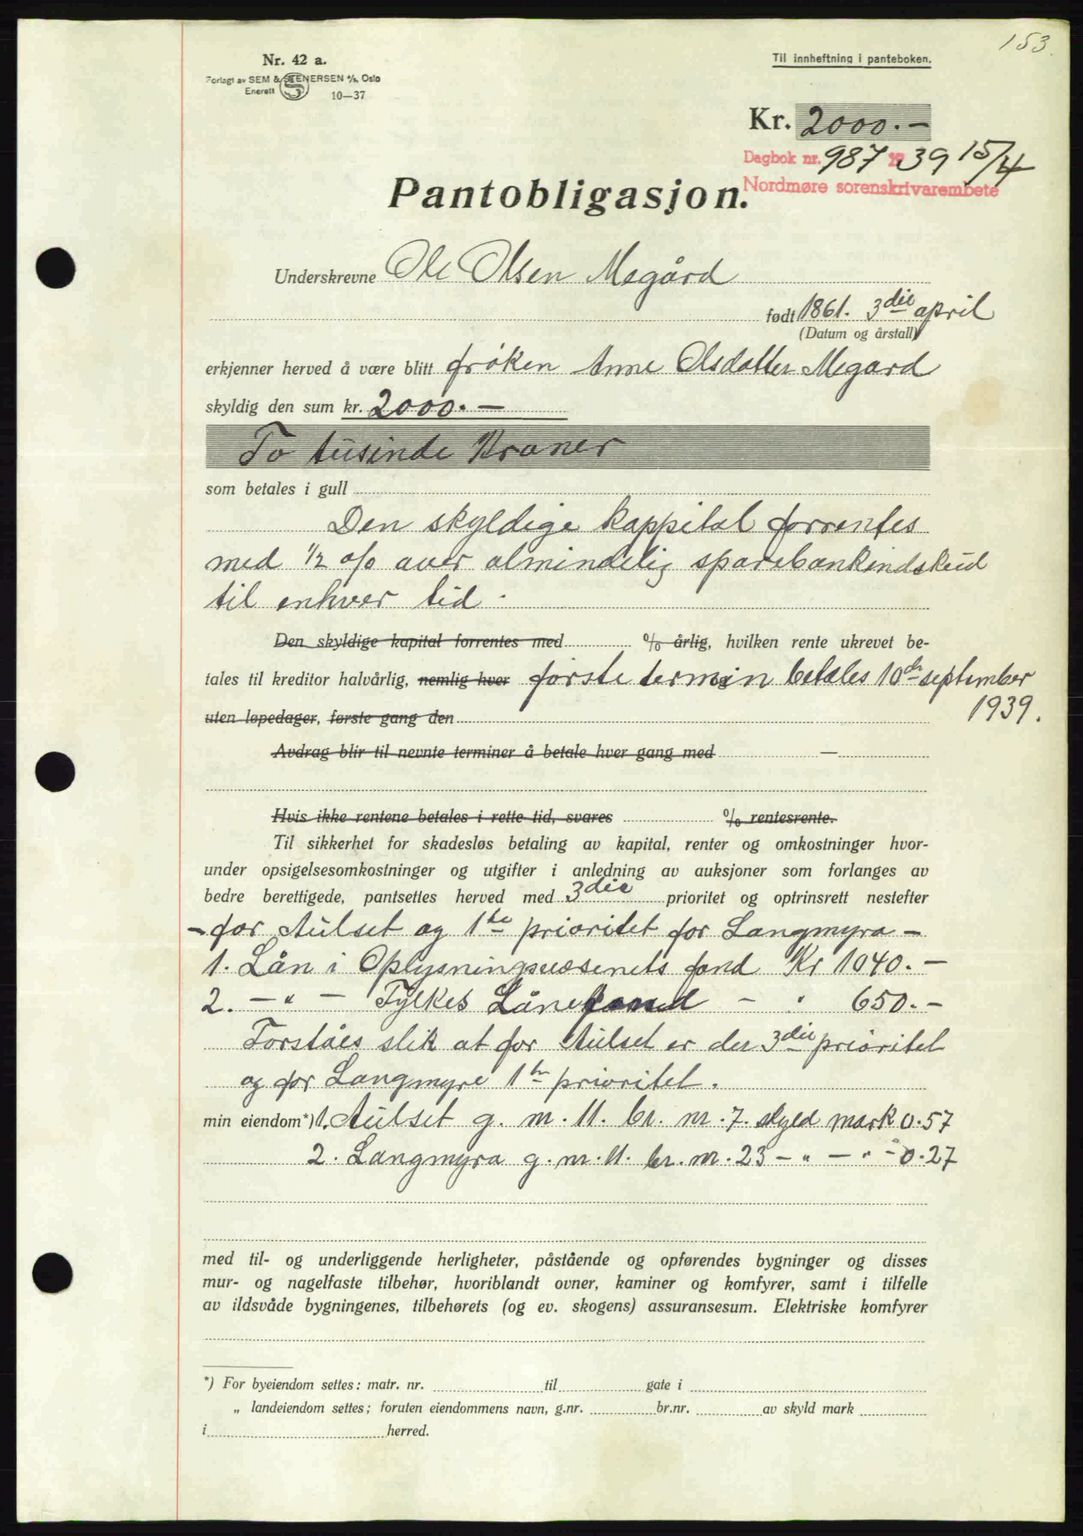 153.
Nr. 42 a.
Til innheftning i panteboken.
Forlagt av SEM & STENERSEN A/s, Oslo
Enerett 10—37
Kr. 2000.—
Dagbok nr. 987 1939 15/4
Nordmøre sorenskrivarembete
Pantobligasjon.
Underskrevne Ole Olsen Megård
født 1861. 3die april
(Datum og årstall)
erkjenner herved å være blitt frøken Anne Olsdatter Megard
skyldig den sum kr. 2000.—
To tusinde Kroner
som betales i gull
Den skyldige kappital forrentes
med 1/2 o/o over almindelig sparebankindskud
til enhver tid.
Den skyldige kapital forrentes med % årlig, hvilken rente ukrevet be-
tales til kreditor halvårlig, nemlig hver første termin betales 10de september
uten løpedager, første gang den 1939.
Avdrag blir til nevnte terminer å betale hver gang med —
Hvis ikke rentene betales i rette tid, svares % rentesrente.
Til sikkerhet for skadesløs betaling av kapital, renter og omkostninger hvor-
under opsigelsesomkostninger og utgifter i anledning av auksjoner som forlanges av
bedre berettigede, pantsettes herved med 3die prioritet og optrinsrett nestefter
- for Aulset og 1ste prioritet for Langmyra -
1. Lån i Oplysningsvæsenets fond Kr 1040.—
2. — " — Fylkes Lånefond — " 650.—
Forståes slik at for Aulset er der 3die prioritet
og for Langmyre 1ste prioritet.
min eiendom*) 1. Aulset g. nr. 11. br. nr. 7. skyld mark 0.57
2. Langmyra g. nr. 11. br. nr. 23 — " — " — 0.27
med til- og underliggende herligheter, påstående og opførendes bygninger og disses
mur- og nagelfaste tilbehør, hvoriblandt ovner, kaminer og komfyrer, samt i tilfelle
av ildsvåde bygningenes, tilbehørets (og ev. skogens) assuransesum. Elektriske komfyrer
*) For byeiendom settes: matr. nr. til gate i
„ landeiendom settes; foruten eiendommens navn, g.nr. br.nr. av skyld mark
i herred.